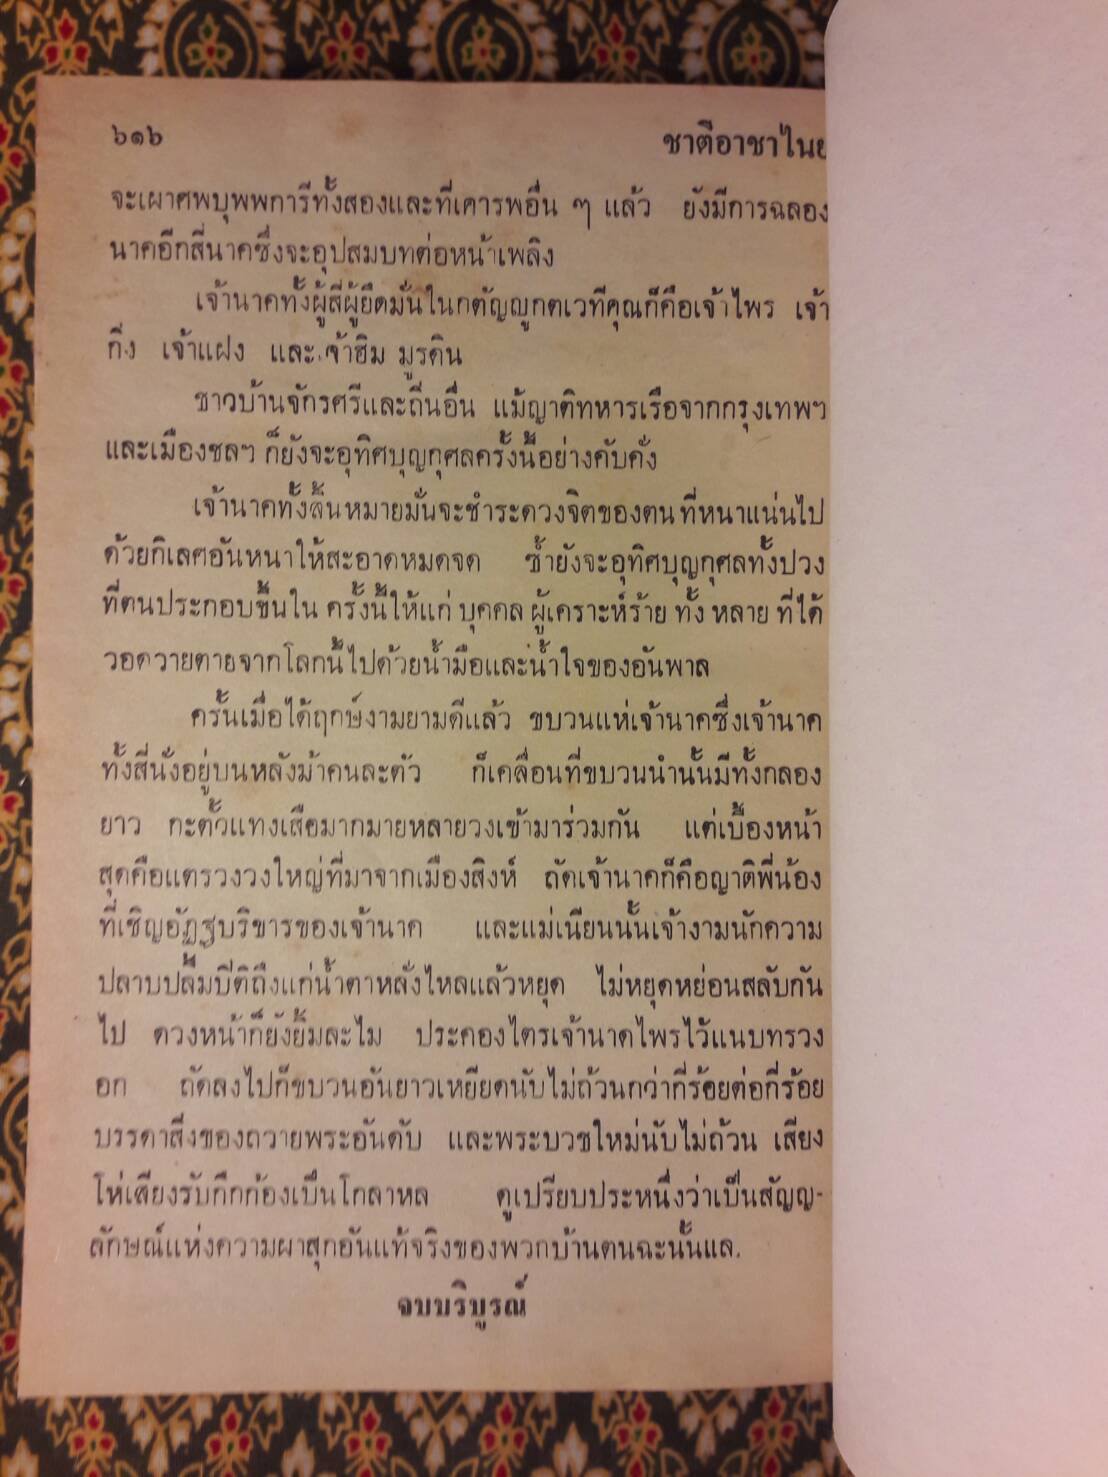 ๖๑๖
ชาตือาชาไนย
จะเผาศพบุพพการีทั้งสองและที่เคารพอื่น ๆ แล้ว ยังมีการฉลอง
นาคอีกสี่นาคซึ่งจะอุปสมบทต่อหน้าเพลิง
เจ้านาคทั้งผู้สี่ผู้ยึดมั่นในกตัญญูกตเวทีคุณก็คือเจ้าไพร เจ้า
กิ่ง เจ้าแฝง และเจ้าฮิม มูรดิน
ชาวบ้านจักรศรีและถิ่นอื่น แม้ญาติทหารเรือจากกรุงเทพฯ
และเมืองชลฯ ก็ยังจะอุทิศบุญกุศลครั้งนี้อย่างคับคั่ง
เจ้านาคทั้งสิ้นหมายมั่นจะชำระดวงจิตของตนที่หนาแน่นไป
ด้วยกิเลศอันหนาให้สะอาดหมดจด ซ้ำยังจะอุทิศบุญกุศลทั้งปวง
ที่ตนประกอบขึ้นใน ครั้งนี้ให้แก่ บุคคล ผู้เคราะห์ร้าย ทั้ง หลาย ที่ได้
วอดวายตายจากโลกนี้ไปด้วยน้ำมือและน้ำใจของอันพาล
ครั้นเมื่อได้ฤกษ์งามยามดีแล้ว ขบวนแห่เจ้านาคซึ่งเจ้านาค
ทั้งสี่นั่งอยู่บนหลังม้าคนละตัว ก็เคลื่อนที่ขบวนนำนั้นมีทั้งกลอง
ยาว กะตั้วแทงเสือมากมายหลายวงเข้ามาร่วมกัน แต่เบื้องหน้า
สุดคือแตรวงวงใหญ่ที่มาจากเมืองสิงห์ ถัดเจ้านาคก็คือญาติพี่น้อง
ที่เชิญอัฏฐบริขารของเจ้านาค และแม่เนียนนั้นเจ้างามนักความ
ปลาบปลื้มปีติถึงแก่น้ำตาหลั่งไหลแล้วหยุด ไม่หยุดหย่อนสลับกัน
ไป ดวงหน้าก็ยังยิ้มละไม ประคองไตรเจ้านาคไพรไว้แนบทรวง
อก ถัดลงไปก็ขบวนอันยาวเหยียดนับไม่ถ้วนกว่ากี่ร้อยต่อกี่ร้อย
บรรดาสิ่งของถวายพระอันดับ และพระบวชใหม่นับไม่ถ้วน เสียง
โห่เสียงรับกึกก้องเป็นโกลาหล ดูเปรียบประหนึ่งว่าเป็นสัญญ-
ลักษณ์แห่งความผาสุกอันแท้จริงของพวกบ้านตนฉะนั้นแล.
จบบริบูรณ์